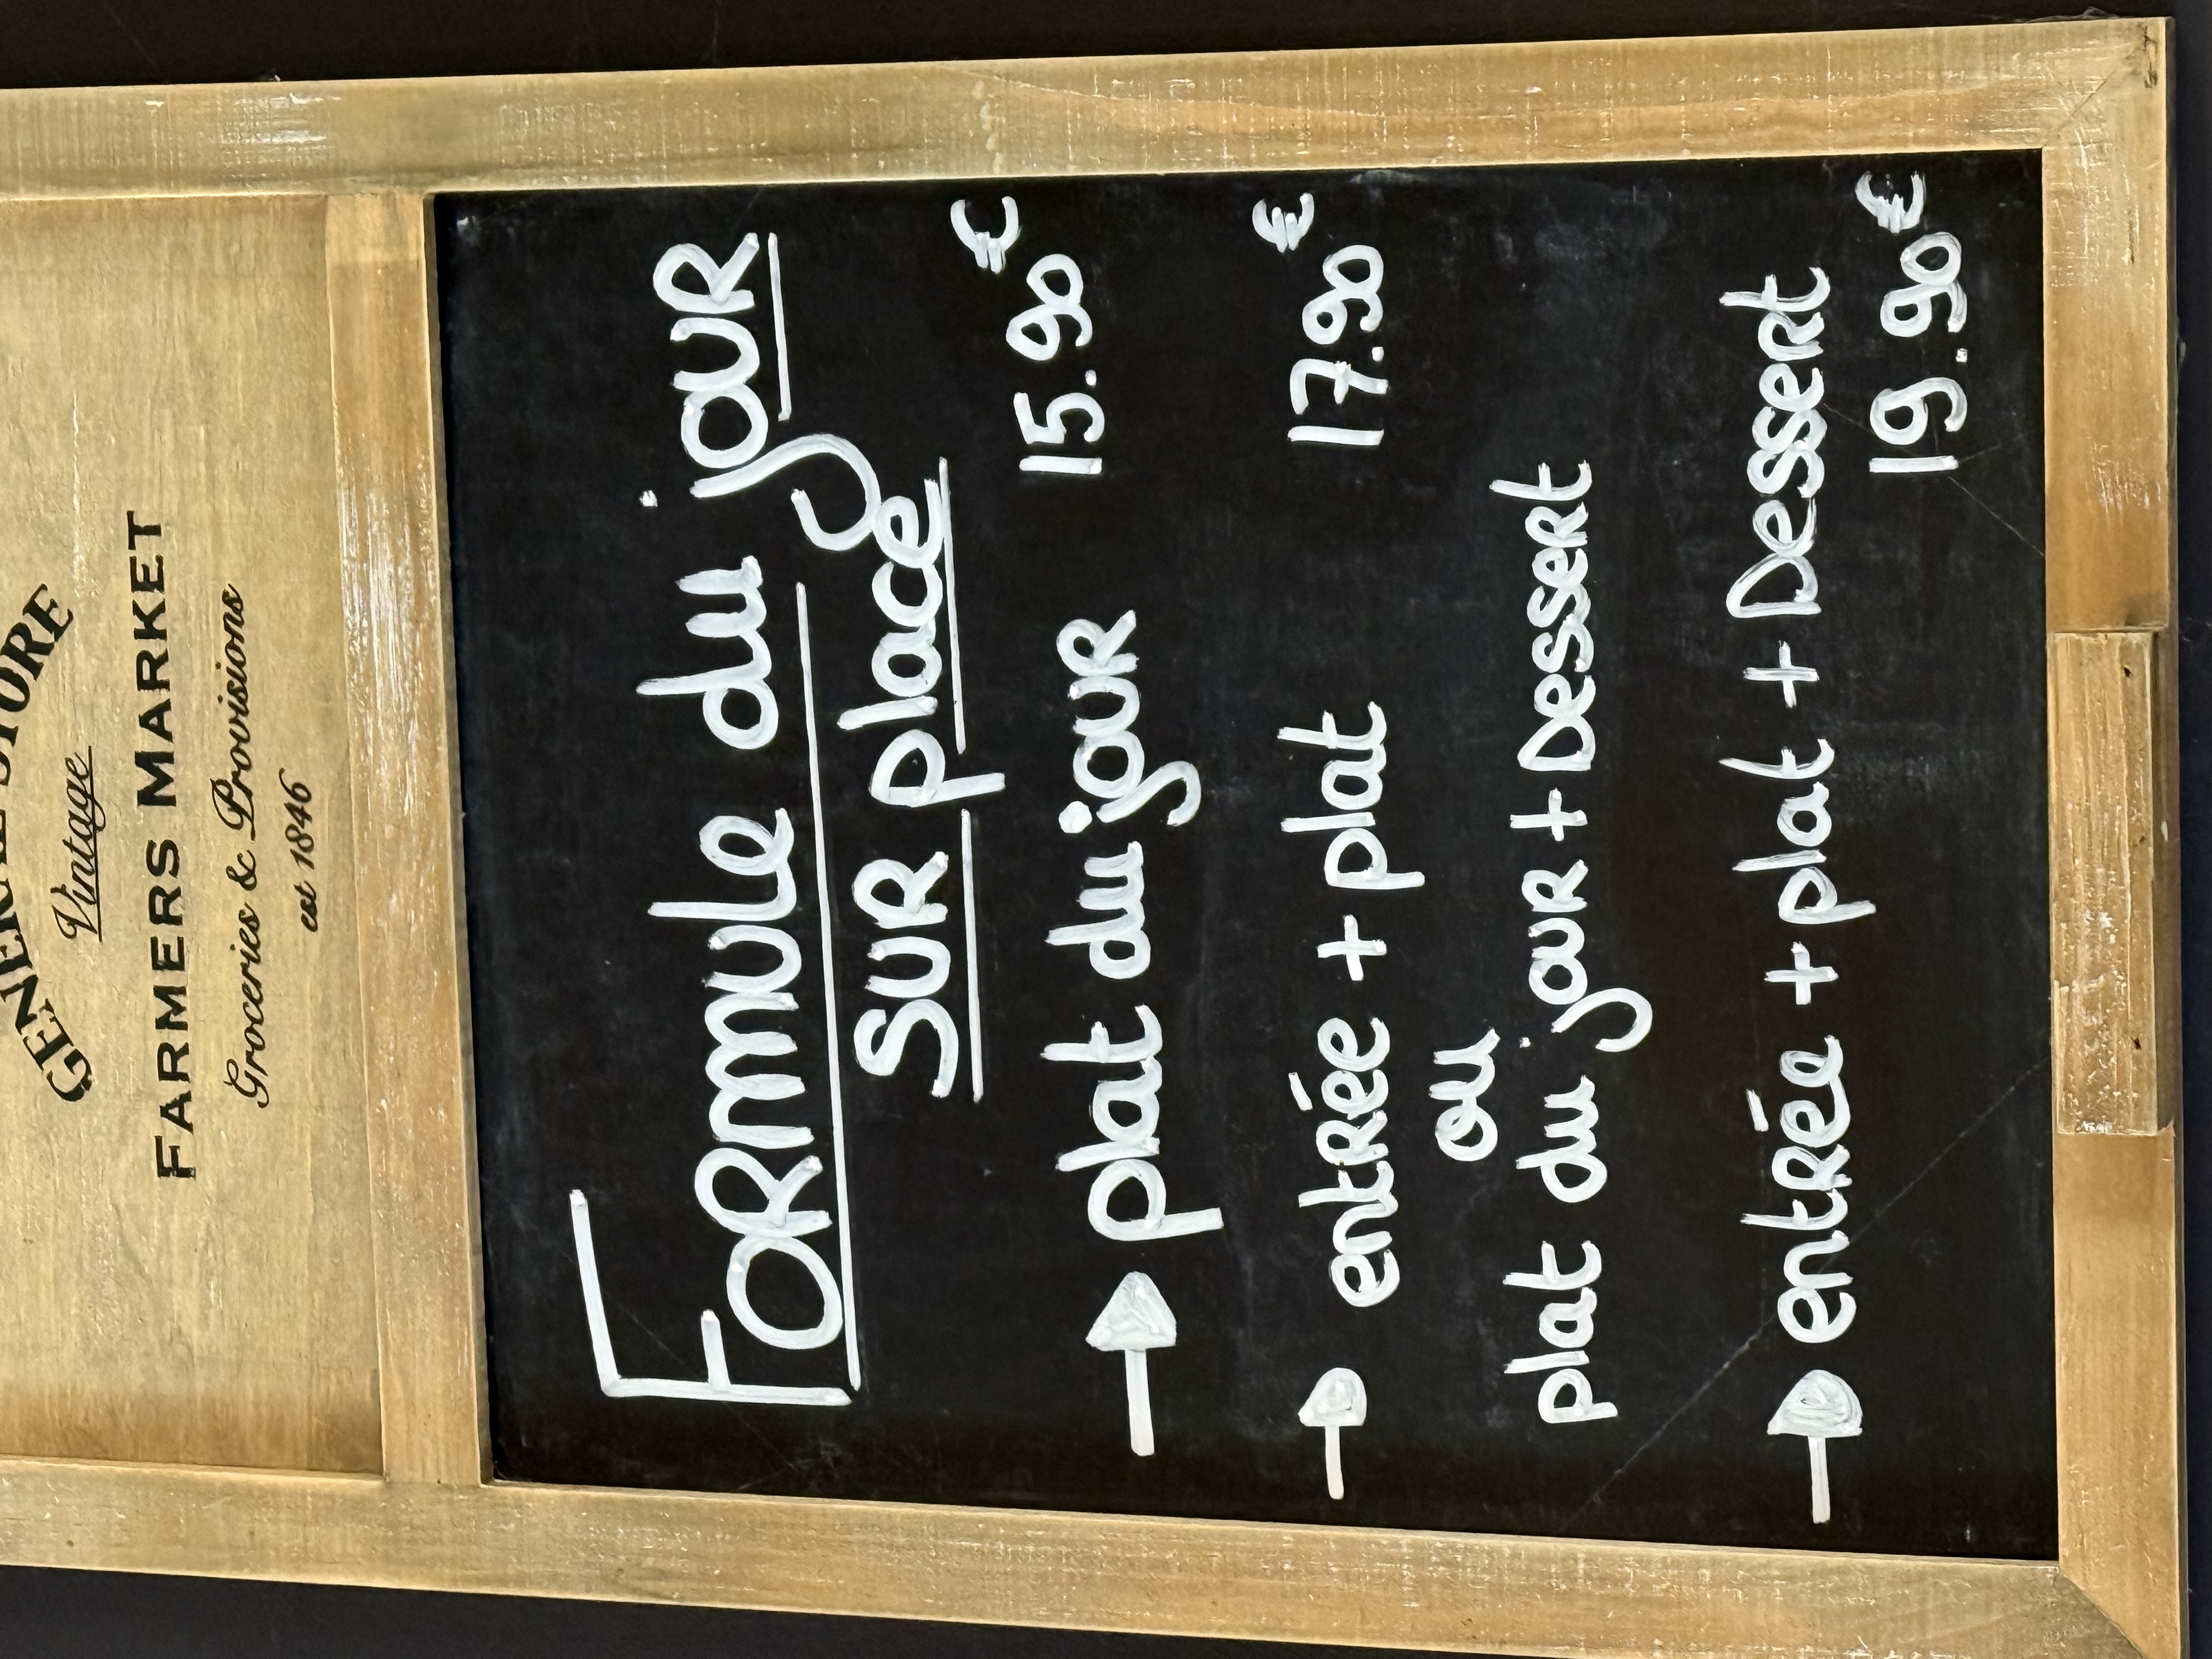 GENERAL STORE
Vintage
FARMERS MARKET
Groceries & Provisions
est 1846
Formule du jour
sur place
plat du jour 15.90€
entrée + plat 17.90€
ou
plat du jour + Dessert
entrée + plat + Dessert
19.90€